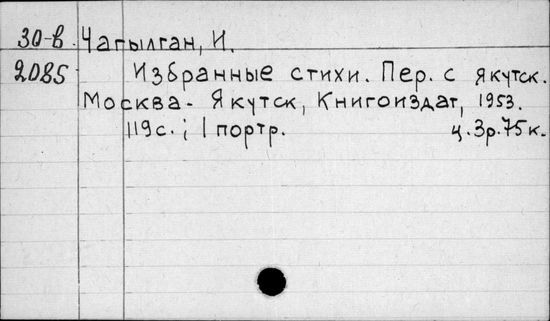 30-в Чагылган, И.
2085 Избранные стихи. Пер. с якутск.
Москва - Якутск, Книгоиздат, 1953.
119с.; 1 портр. ц. 3р. 75к.